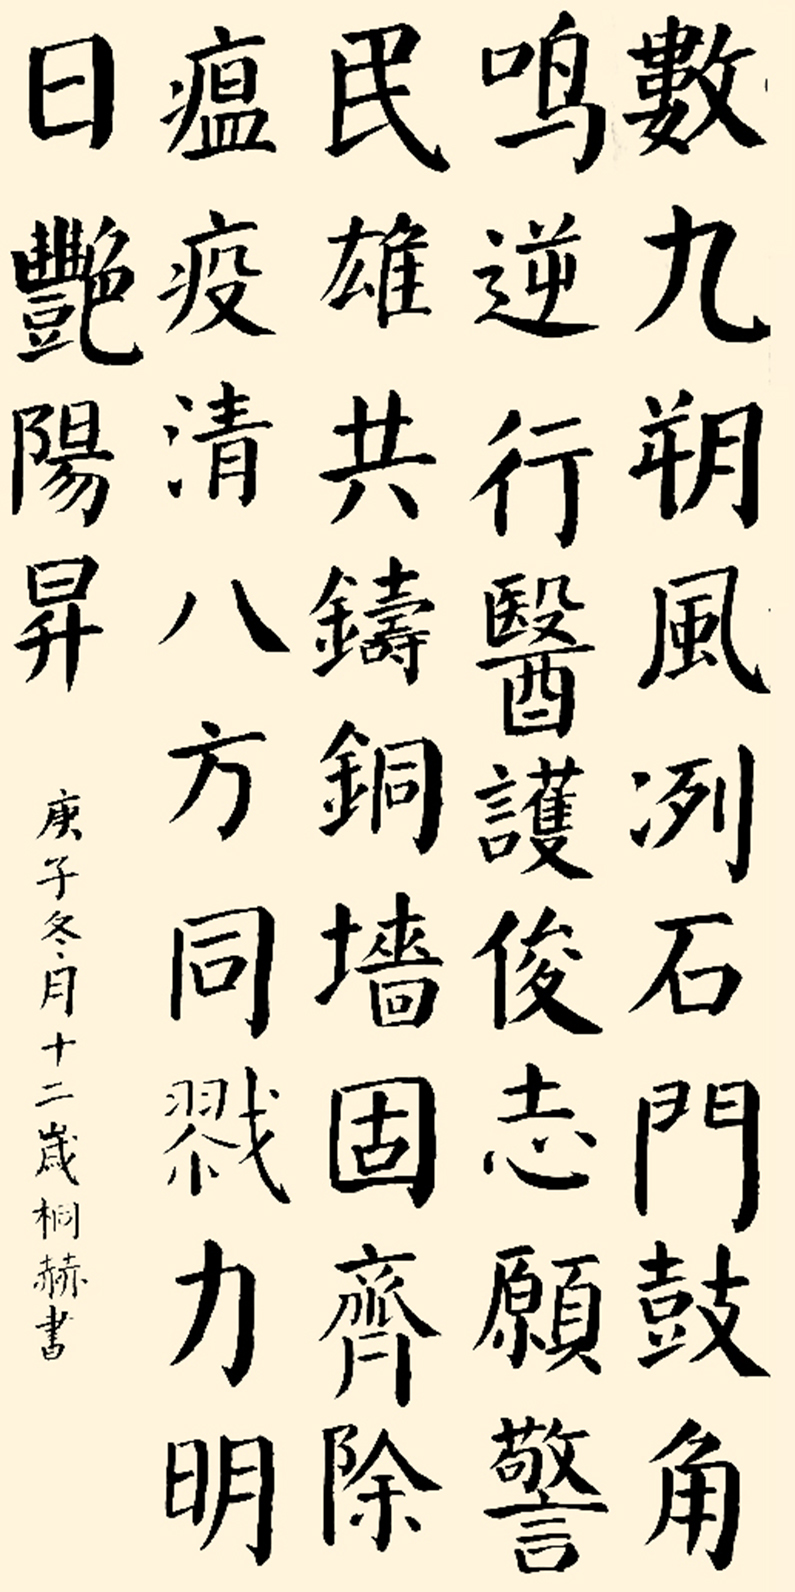 數九朔風冽石門鼓角
鸣逆行醫護俊志願警
民雄共鑄銅墻固齊除
瘟疫清八方同戮力明
日艷陽昇
庚子冬月十二歲桐赫書